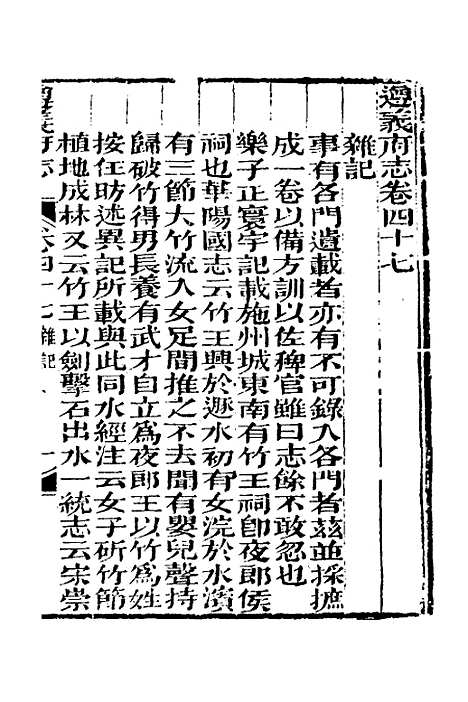 遵義府志卷四十七
雜記
事有各門遺載者亦有不可錄入各門者茲並採摭
成一卷以備方訓以佐稗官雖曰志餘不敢忽也
樂子正寰宇記載施州城東南有竹王祠卽夜郎侯
祠也華陽國志云竹王興於遯水初有女浣於水濱
有三節大竹流入女足間推之不去聞有嬰兒聲持
歸破竹得男長養有武才自立爲夜郎王以竹爲姓
按任昉述異記所載與此同水經注云女子斫竹節
植地成林又云竹王以劍擊石出水一統志云宋崇
遵義府志
卷四十七雜記